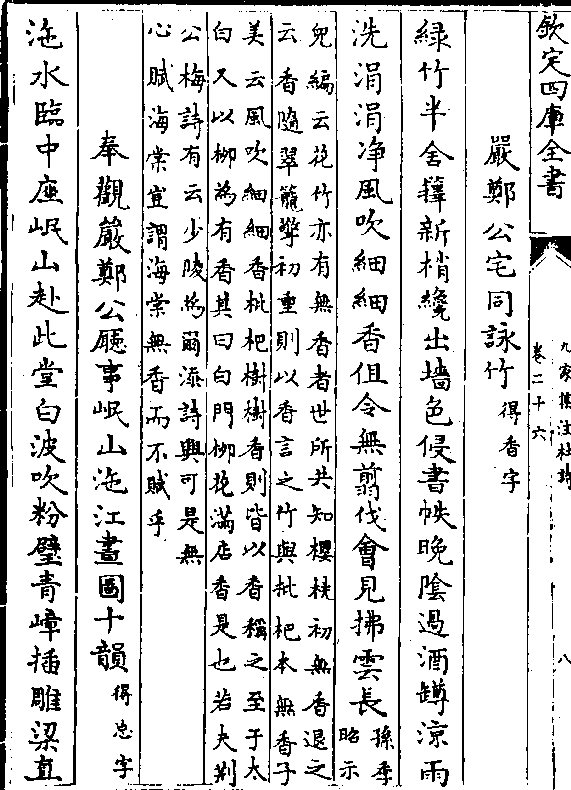 欽定四庫全書
九家集注杜詩
卷二十六
八
嚴鄭公宅同詠竹 得香字
綠竹半含籜新梢纔出墻色侵書帙晚陰過酒罇涼雨
洗涓涓净風吹細細香但令無翦伐會見拂雲長 孫季昭示
兒編云花竹亦有無香者世所共知櫻桃初無香退之
云香隨翠籠擎初重則以香言之竹與枇杷本無香子
美云風吹細細香枇杷樹樹香則皆以香稱之至于太
白又以柳為有香其曰白門柳花滿店香是也若夫荆
公梅詩有云少陵為爾添詩興可是無
心賦海棠豈謂海棠無香而不賦乎
奉觀嚴鄭公廳事岷山沲江畫圖十韻 得忘字
沲水臨中座岷山赴此堂白波吹粉壁青嶂插雕梁直